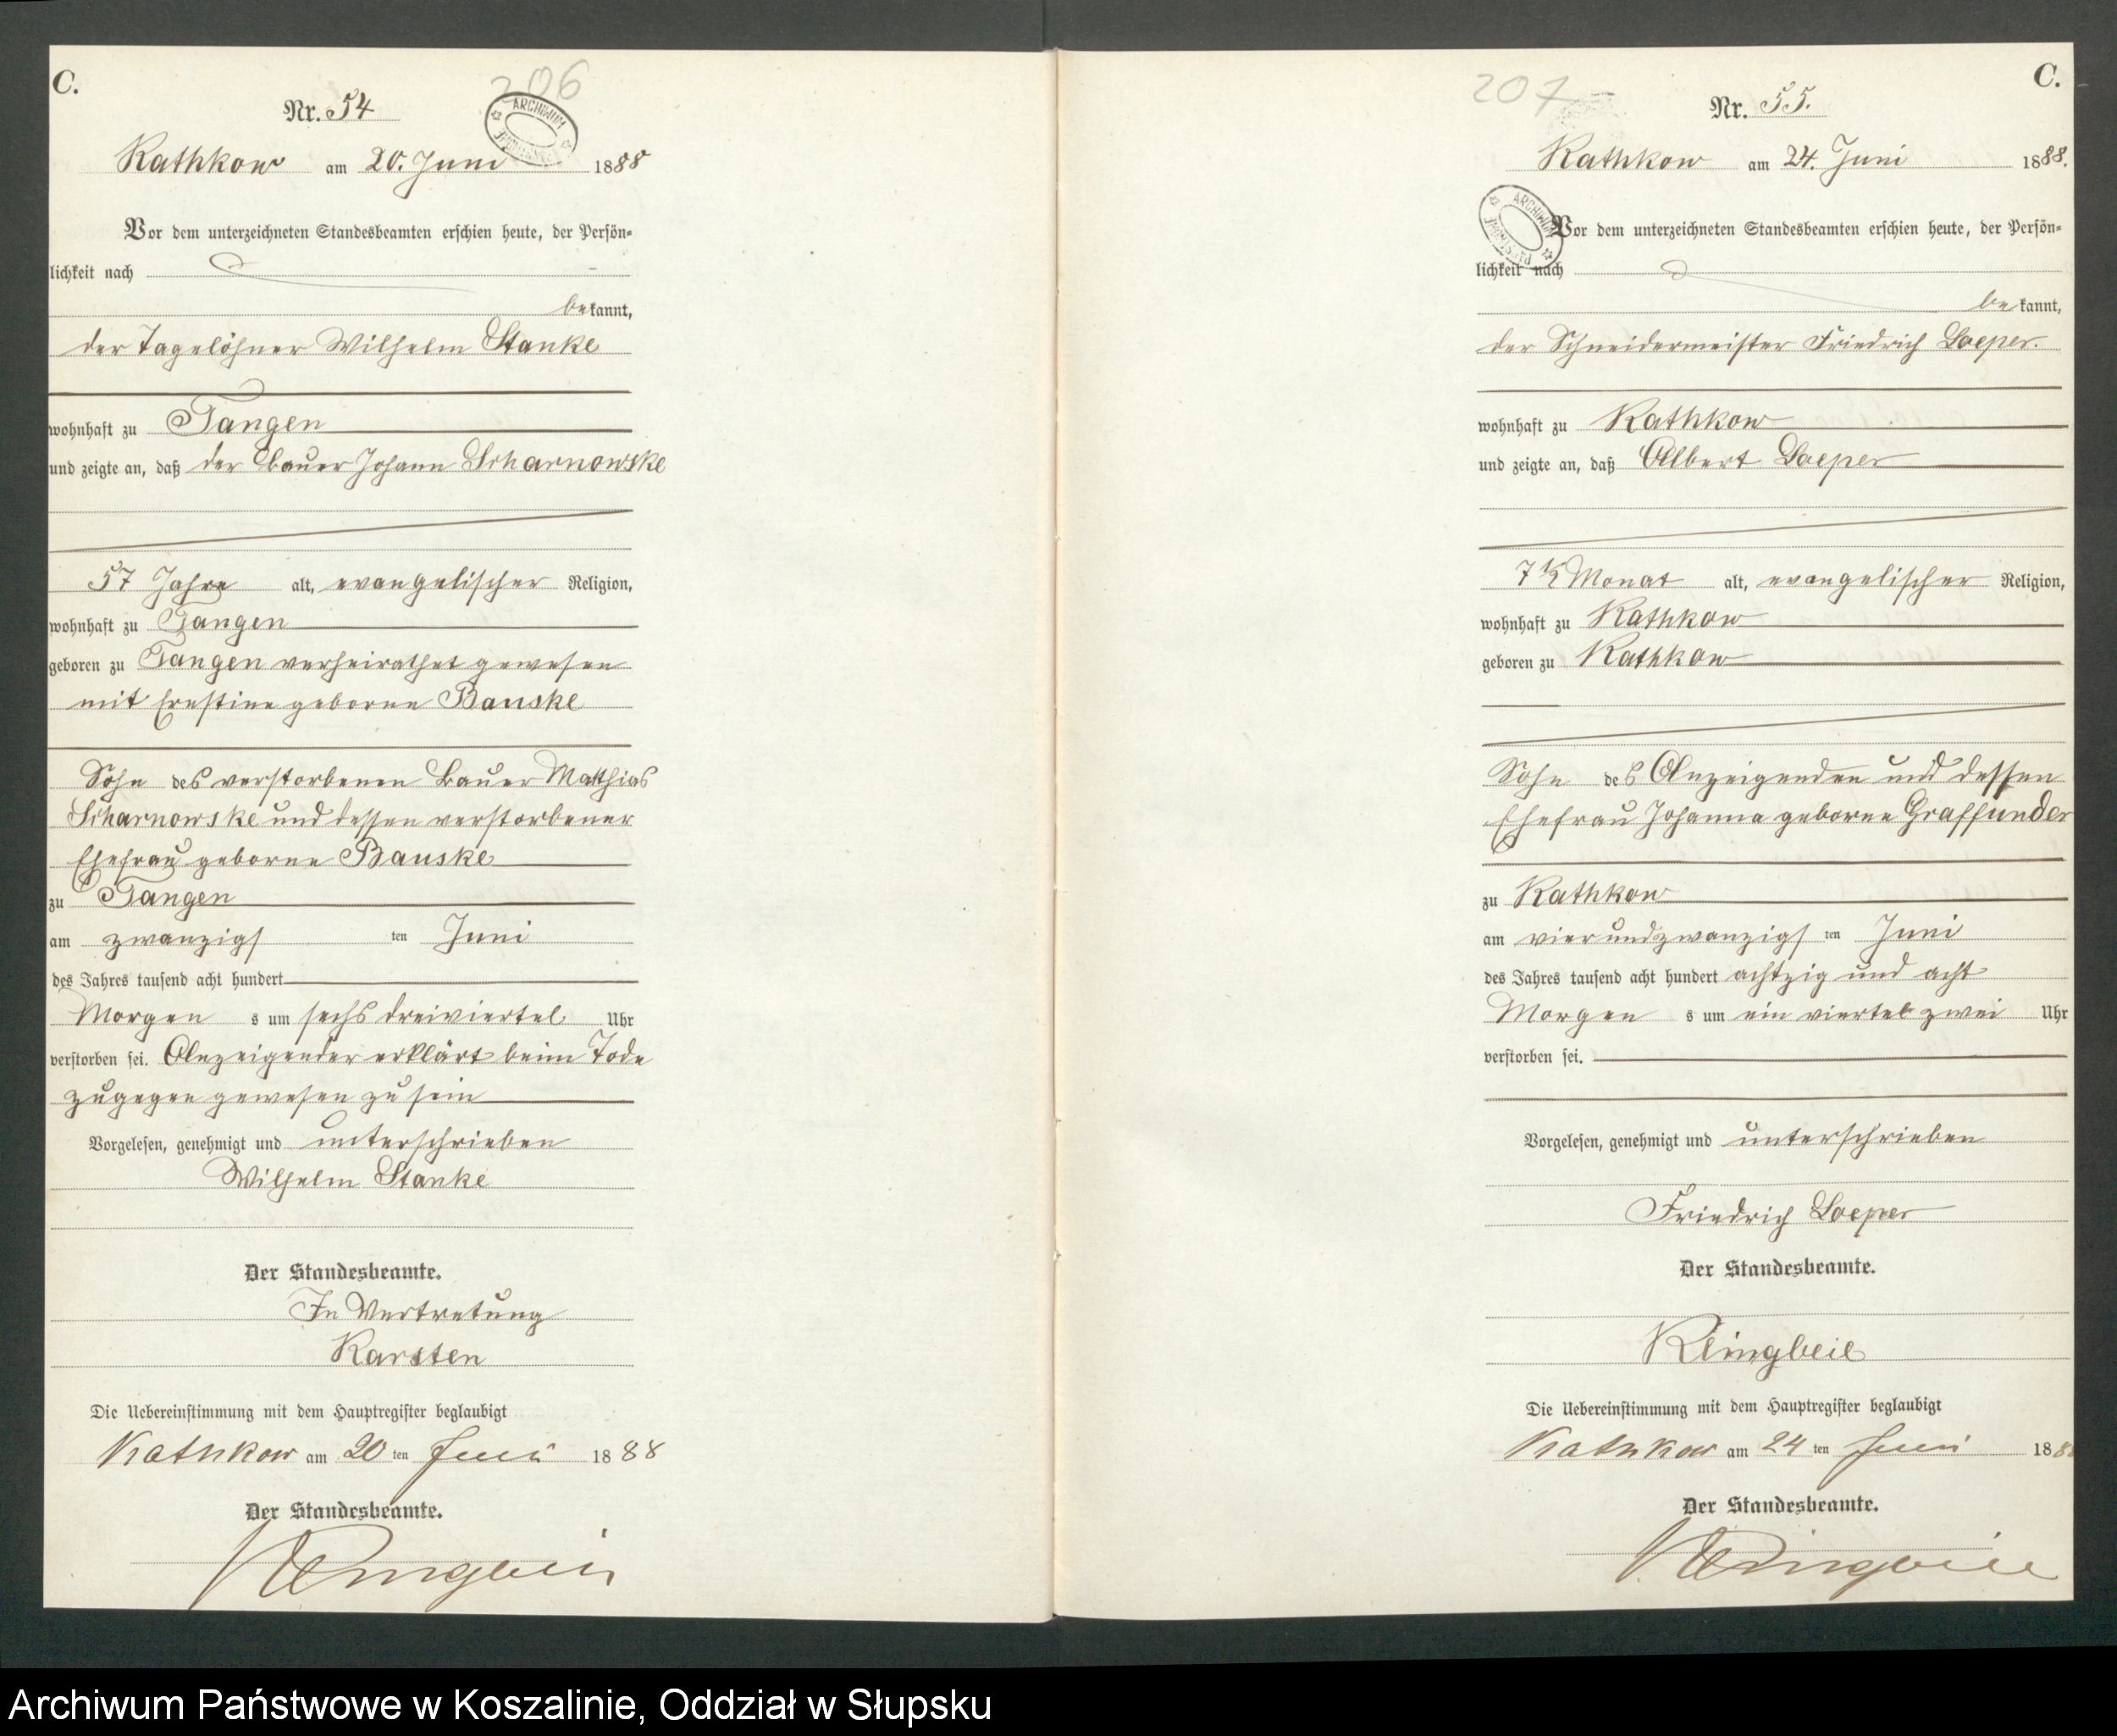 C.
206
Nr. 54
ARCHIWUM
Rathkow am 20. Juni 1888
Vor dem unterzeichneten Standesbeamten erschien heute, der Persön-
lichkeit nach
bekannt,
der Tagelöhner Wilhelm Stanke
wohnhaft zu Tangen
und zeigte an, daß der Bauer Johann Scharnowske
57 Jahre alt, evangelischer Religion,
wohnhaft zu Tangen
geboren zu Tangen verheirathet gewesen
mit Ernstine geborne Bauske
Sohn des verstorbenen Bauer Matthias
Scharnowske und dessen verstorbener
Ehefrau geborne Bauske
zu Tangen
am zwanzigsten Juni
des Jahres tausend acht hundert
Morgens um sechs dreiviertel Uhr
verstorben sei. Anzeigender erklärt beim Tode
zugegen gewesen zu sein
Vorgelesen, genehmigt und unterschrieben
Wilhelm Stanke
Der Standesbeamte.
In Vertretung
Karsten
Die Uebereinstimmung mit dem Hauptregister beglaubigt
Rathkow am 20ten Juni 1888
Der Standesbeamte.
Klingbeil
C.
207
Nr. 55.
Rathkow am 24. Juni 1888.
ARCHIWUM
Vor dem unterzeichneten Standesbeamten erschien heute, der Persön-
lichkeit nach
bekannt,
der Schneidermeister Friedrich Loeper.
wohnhaft zu Rathkow
und zeigte an, daß Albert Loeper
7 1/2 Monat alt, evangelischer Religion,
wohnhaft zu Rathkow
geboren zu Rathkow
Sohn des Anzeigenden und dessen
Ehefrau Johanna geborne Graffunder
zu Rathkow
am vierundzwanzigsten Juni
des Jahres tausend acht hundert achtzig und acht
Morgens um ein viertel zwei Uhr
verstorben sei.
Vorgelesen, genehmigt und unterschrieben
Friedrich Loeper
Der Standesbeamte.
Klingbeil
Die Uebereinstimmung mit dem Hauptregister beglaubigt
Rathkow am 24ten Juni 188
Der Standesbeamte.
Klingbeil
Archiwum Państwowe w Koszalinie, Oddział w Słupsku